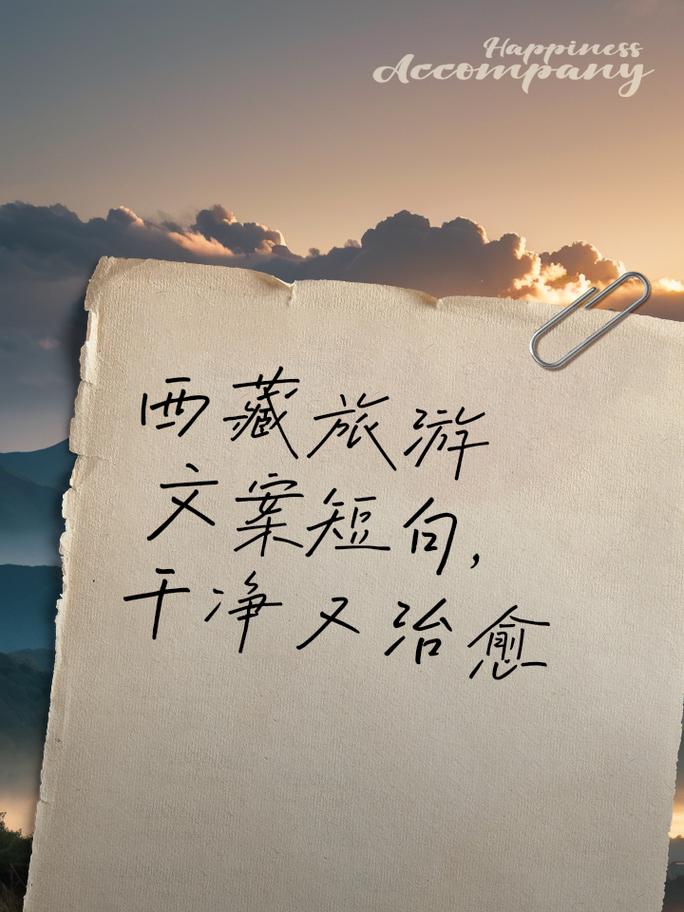 Happiness
Accompany
西藏旅游
文案短句，
干净又治愈